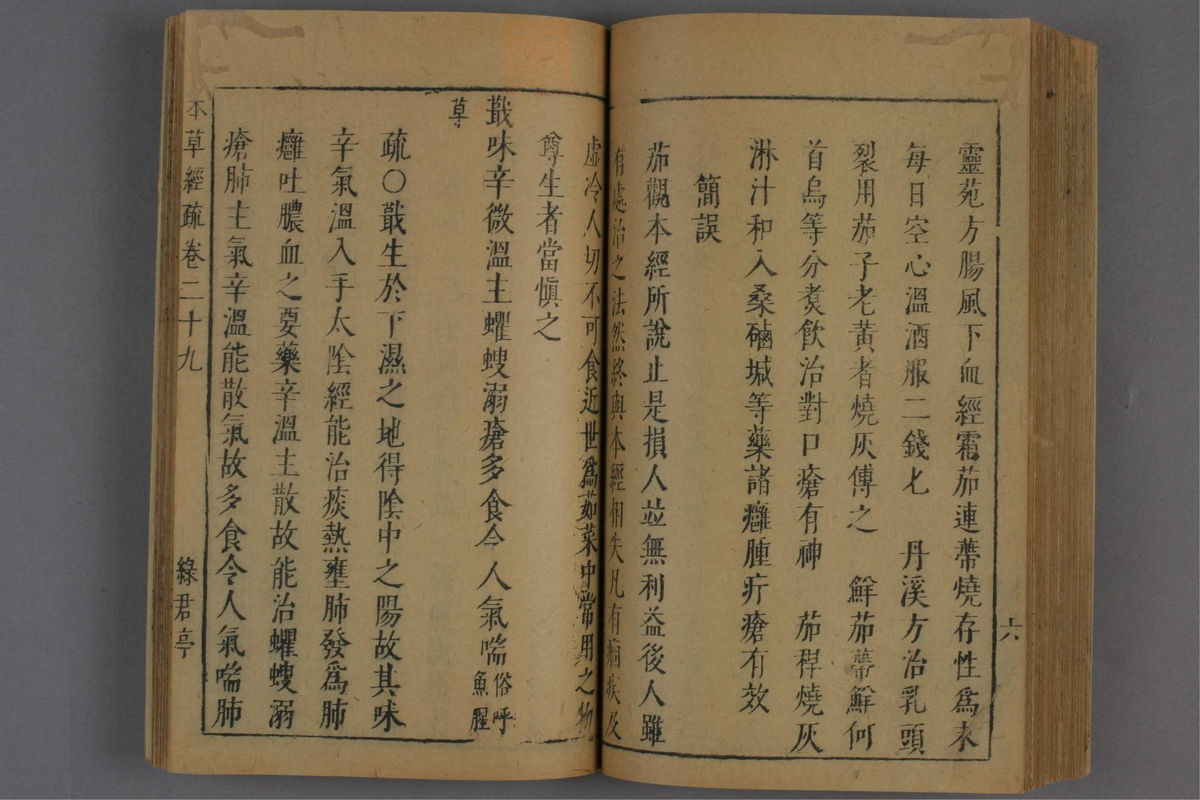 靈苑方腸風下血經霜茄連蔕燒存性爲末
每日空心溫酒服二錢七　丹溪方治乳頭
裂用茄子老黃者燒灰傅之　鮮茄蔕鮮何
首烏等分煑飲治對口瘡有神　茄稈燒灰
淋汁和入桑磠堿等藥諸癰腫疔瘡有效
簡誤
茄觀本經所說止是損人並無利益後人雖
有處治之法然終與本經相失凡有痼疾及
虛冷人切不可食近世爲茹菜中常用之物
尊生者當慎之
蕺味辛微溫主蠷螋溺瘡多食令人氣喘俗呼魚腥
草
疏○蕺生於下濕之地得陰中之陽故其味
辛氣溫入手太陰經能治痰熱壅肺發爲肺
癰吐膿血之要藥辛溫主散故能治蠷螋溺
瘡肺主氣辛溫能散氣故多食令人氣喘肺
本草經疏卷二十九
綠君亭
六